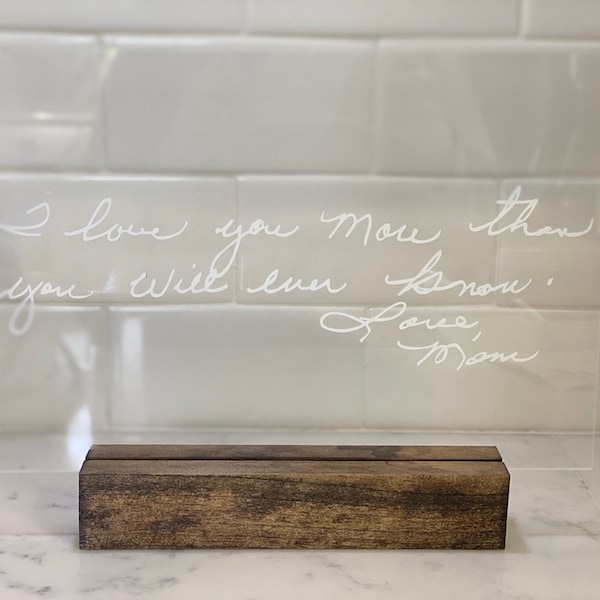 I love you more than
you will ever know.
Love,
Mom